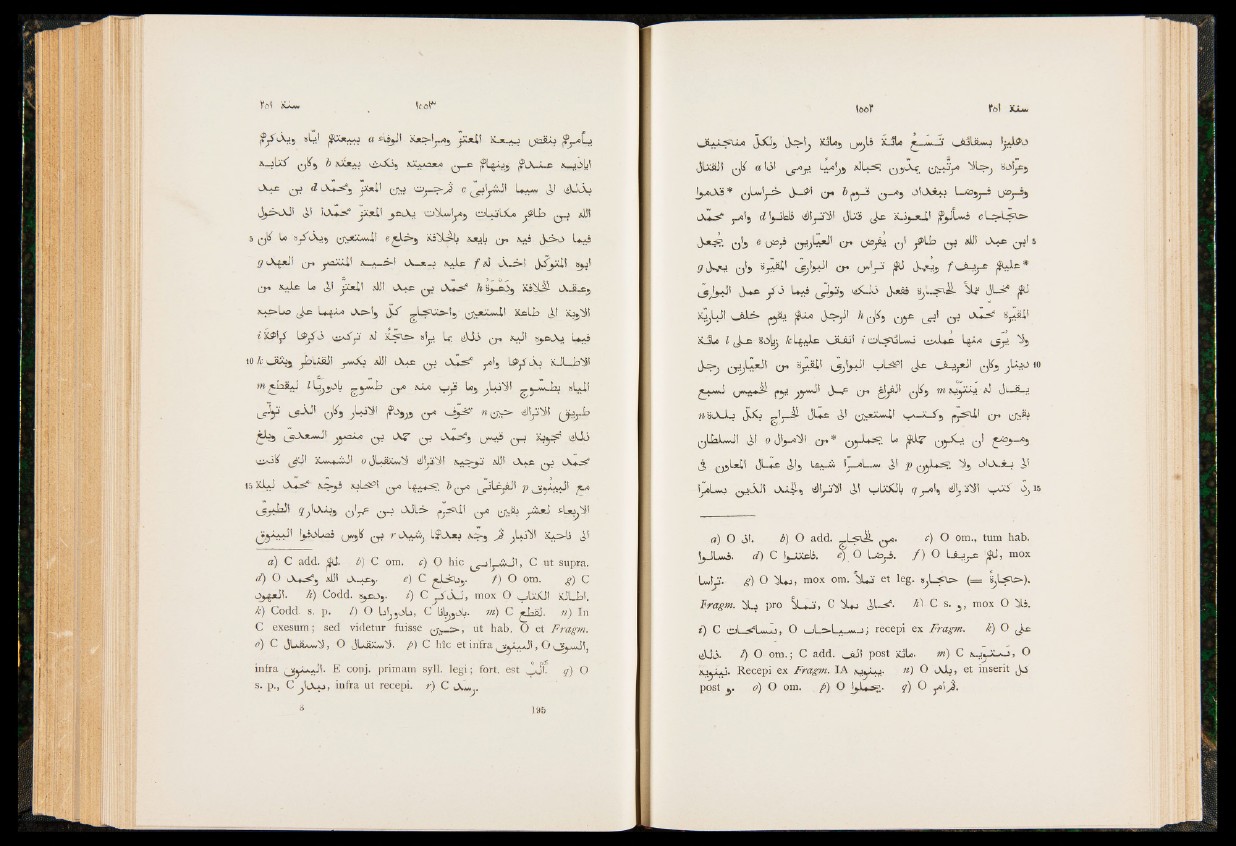 سنة ٢٥١ ١٥٥٢
دهليزا بسقائف تَسَعُ مائة فارس ومائة راجل ولكلّ منجنيق
وعرّادة رجالا مرتّبين يمدّون بحباله وراميا يرمى a اذا كان القتال
وفرض فروضا ببغداد ومن قوم b من اهل خراسان *قدموا
حجّاجا c فسألوا المعونة على قتال الاتراك فاعانوا d وامر محمّد
ابن عبد الله بن طاهر ان يفرض من العيّارين فرض e وان يجعل
*عليهم عريف f ويُعمل لهم تراس من البوارى المقيّرة وان يعمل g
لهم مخال تملأ حجارة ففعل ذلك وتولّى فيما ذكر عمل البوارى
المقيّرة محمّد بن ابى عون وكان h الرجل منهم يقوم خلف الباريّة
ولا يُرى منها عُملت نسائجات i انفق عليها k زيادة على l مائة
الف دينار وكان العريف على اصحاب البوارى المقيّرة من العيّارين رجل
يقال له m وكان الفراغ من عمل السور يوم الخميس لسبع
بقين من المحرّم وكتب المستعين الى عمّال الخراج بكلّ بلدة n
وموضع ان يكون حملهم ما يحملون *من الاموال o الى السلطان
الى بغداد ولا يحملون p الى سامرّا شيئا والى عمّال المعاون فى
ردّ كتب الاتراك وامر q بالكتاب الى الاتراك والجند الذين بسامرّا
a) O اذ. b) O add. من الحاج. c) O om., tum hab.
فسالوا. d) C فاعتنوا. e) O فرضا. f) O لهم عريفا, mox
تراسا. g) O بملا, mox om. تملأ et leg. حجارة (= حجارةً).
Fragm. بلا pro تملا, C محالى بملا. h) C s. و, mox O فلا.
i) C, O; recepi ex Fragm. k) O على
ذلك. l) O om.; C add. الف post مائة. m) C, O
. Recepi ex Fragm. IA. n) O بلد, et inserit كل
post و. o) O om. p) O يحملوا. q) O ثم امر.
سنة ٢٥١ ١٥٥٣
يأمرهم بنقض بيعة المعتزّ ومراجعة الوفاء a ببيعتهم ايّاه ويذكّرهم
اياديه عندهم وينهاهم عن معصيته ونكث بيعته b وكان كتابه
بذلك الى سيما الشرابىّ c ثم جرت بين المعتزّ ومحمّد d بن عبد
الله بن طاهر مكاتبات ومراسلات يدعو المعتزّ محمّدا الى الدخول
فيما دخل فيه من بايعه بالخلافة وخلع e المستعين ويذكره ما كان
ابوه المتوكّل اخذ له f عليه بعد اخيه المنتصر من العهد g
وعقد الخلافة ودَعْوَة h محمّد بن عبد الله المعتزّ الى ما عليه من
الاوبة الى طاعة المستعين واحتجاج كلّ واحد منهما على صاحبه
فيما يدعوه اليه من ذلك بما يراه حجّة له تركت ذكرها كراهة i
الاطالة بذكرها وامر محمّد بن عبد الله بكسر القناطر وبثق k
المياه بطسّوج الانبار وما قرب منه من طسّوج بادوريا l ليقطع m
طريق الاتراك حين n تخوّف من ورودهم الانبار وكان الذى تولّى
ذلك نجوبة بن قيس ومحمّد بن حمد بن منصور السعدى وبلغ
محمّد بن عبد الله توجيه الاتراك لاستقبال o الشمسة التى كانت
مع البينوق p الفرغانى من b يحميها من اصحابه فوجّه محمّد ليلة
الاربعاء لعشر بقين من المحرّم خالد بن عمران وبندار q الطبرى
الى ناحية الانبار ثم وجّه بعدهما رشيد r بن كاوس فصادفوا البينوق
a) C add. لهم. b) C om. c) O hic, C ut supra.
d) O عبد الله ومحمد. e) C. f) O om. g) C
العهود. h) Codd. ودعوه. i) C, mox O اطالة الكتاب.
k) Codd. s. p. l) O, C. m) C لقطع. n) In
C exesum; sed videtur fuisse حسين, ut hab. O et Fragm.
o) C لاستقبال, O لاستقبال. p) C hic et infra, O,
infra. E conj. primam syll. legi; fort. est. q) O
s. p., C, infra ut recepi. r) C.
195